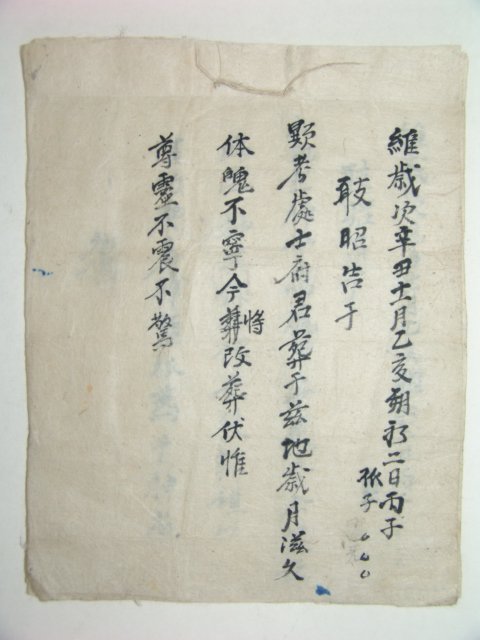 維歲次辛丑十一月乙亥朔初二日丙子
孤子 ○○○
敢昭告于
顯考處士府君葬于玆地歲月滋久
体魄不寧今將改葬伏惟
尊靈不震不驚